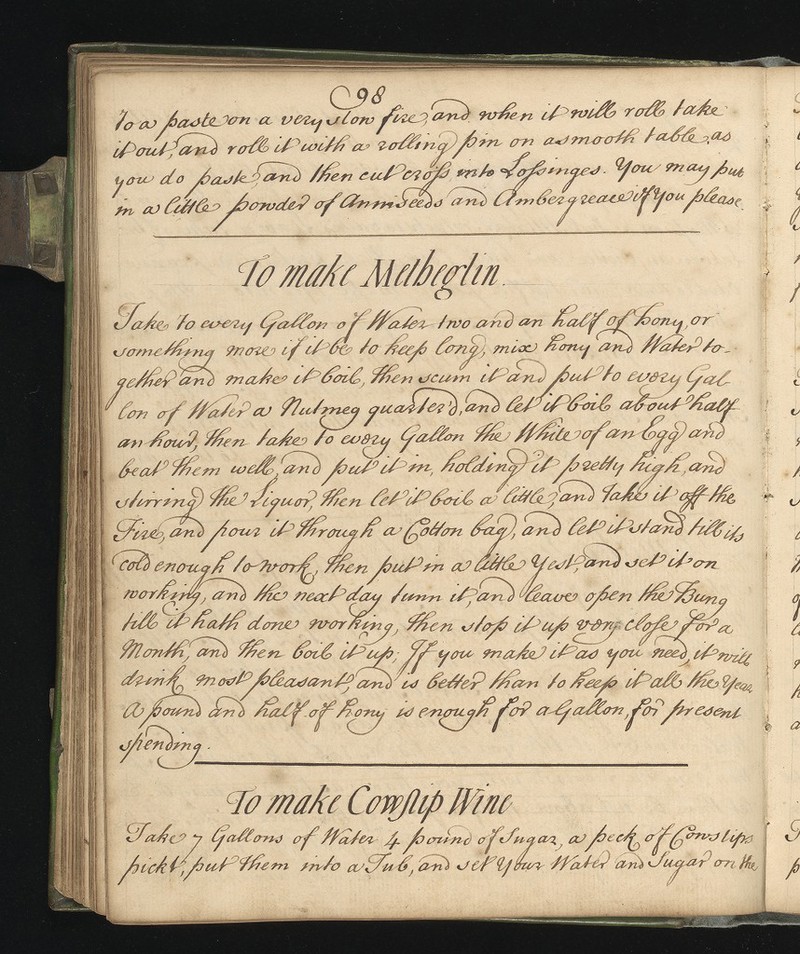 98
to a paste on a very slow fire, and when it will roll take
it out, and roll it with a rolling pin on a smooth table, as
you do paste, and then cut cross into Lossinges. You may put
in a little powder of Anniseeds and Ambergreace if You please.
To make Metheglin.
Take to every Gallon of Water two and an half of hony, or
something more if it be to keep long, mix hony and Water to-
gether and make it boil, then scum it and put to every Gal
lon of Water a Nutmeg quarter'd, and let it boil about half
an hour, then take to every Gallon the White of an Egg and
beat them well, and put it in, holding it pretty high, and
stirring the Liquor, then let it boil a little, and take it off the
Fire, and pour it through a Cotton bag, and let it stand till its
cold enough to work, then put in a little Yest, and set it on
working, and the next day tunn it, and leave open the Bung
till it hath done working, then stop it up very close for a
Month, and then boil it up; If you make it as you need, it will
drink most pleasant, and is better than to keep it all the Year
A pound and half of hony is enough for a Gallon, for present
spending.
To make Cowslip Wine
Take 7 Gallons of Water 4 pound of Sugar, a peck of Cowslips
pickt, put them into a Tub, and set Your Water and Sugar on the